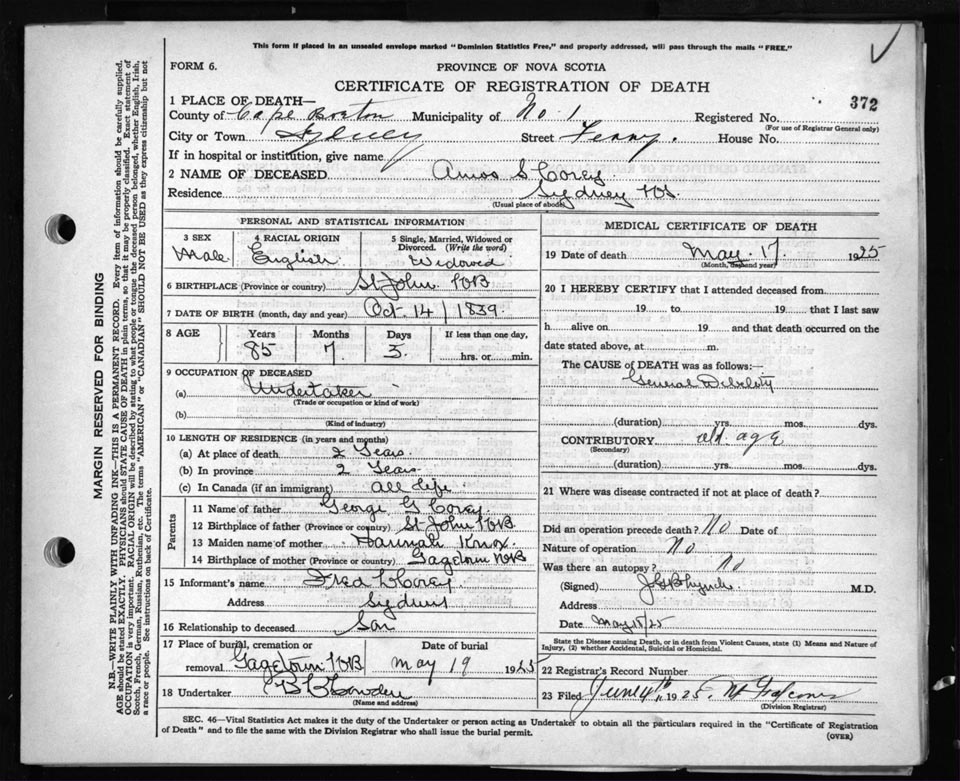 This form if placed in an unsealed envelope marked "Dominion Statistics Free," and properly addressed, will pass through the mails "FREE."
FORM 6.
PROVINCE OF NOVA SCOTIA
CERTIFICATE OF REGISTRATION OF DEATH
372
1 PLACE OF DEATH—
County of Cape Breton Municipality of No 1 Registered No.
(For use of Registrar General only)
City or Town Sydney Street Ferry. House No.
If in hospital or institution, give name
2 NAME OF DECEASED Amos S Corey
Residence Sydney NS
(Usual place of abode)
PERSONAL AND STATISTICAL INFORMATION
3 SEX Male
4 RACIAL ORIGIN English
5 Single, Married, Widowed or Divorced. (Write the word) Widowed
6 BIRTHPLACE (Province or country) St John NB
7 DATE OF BIRTH (month, day and year) Oct 14 1839.
8 AGE Years Months Days If less than one day,
85 7 3 hrs. or min.
9 OCCUPATION OF DECEASED
(a) Undertaker
(Trade or occupation or kind of work)
(b)
(Kind of industry)
10 LENGTH OF RESIDENCE (in years and months)
(a) At place of death 2 Years.
(b) In province 2 Years
(c) In Canada (if an immigrant) all life
Parents
11 Name of father George G Corey
12 Birthplace of father (Province or country) St John NB
13 Maiden name of mother Hannah Knox.
14 Birthplace of mother (Province or country) Gagetown NB
15 Informant's name Fred Corey
Address Sydney
16 Relationship to deceased Son
17 Place of burial, cremation or removal Gagetown NB
Date of burial May 19 1925
18 Undertaker
(Name and address)
MEDICAL CERTIFICATE OF DEATH
19 Date of death May. 17. 1925
(Month, day and year)
20 I HEREBY CERTIFY that I attended deceased from
19 to 19 that I last saw
h alive on 19 and that death occurred on the
date stated above, at m.
The CAUSE of DEATH was as follows:—
General Debility
(duration) yrs. mos. dys.
CONTRIBUTORY old age
(Secondary)
(duration) yrs. mos. dys.
21 Where was disease contracted if not at place of death?
Did an operation precede death? No Date of
Nature of operation No
Was there an autopsy? No
(Signed) Lynch M.D.
Address
Date May 18/25
State the Disease causing Death, or in death from Violent Causes, state (1) Means and Nature of Injury, (2) whether Accidental, Suicidal or Homicidal.
22 Registrar's Record Number
23 Filed June 4th 1925.
(Division Registrar)
SEC. 46—Vital Statistics Act makes it the duty of the Undertaker or person acting as Undertaker to obtain all the particulars required in the "Certificate of Registration
of Death" and to file the same with the Division Registrar who shall issue the burial permit.
(OVER)
MARGIN RESERVED FOR BINDING
N.B.—WRITE PLAINLY WITH UNFADING INK—THIS IS A PERMANENT RECORD. Every item of information should be carefully supplied.
AGE should be stated EXACTLY. PHYSICIANS should STATE CAUSE OF DEATH in plain terms, so that it may be properly classified. Exact statement of
OCCUPATION is very important. RACIAL ORIGIN will be described by stating to what people or tongue the deceased person belonged, whether English, Irish,
Scotch, French, German, Russian, Ruthenian, etc. The terms "AMERICAN" or "CANADIAN" SHOULD NOT BE USED as they express citizenship but not
a race or people. See instructions on back of Certificate.